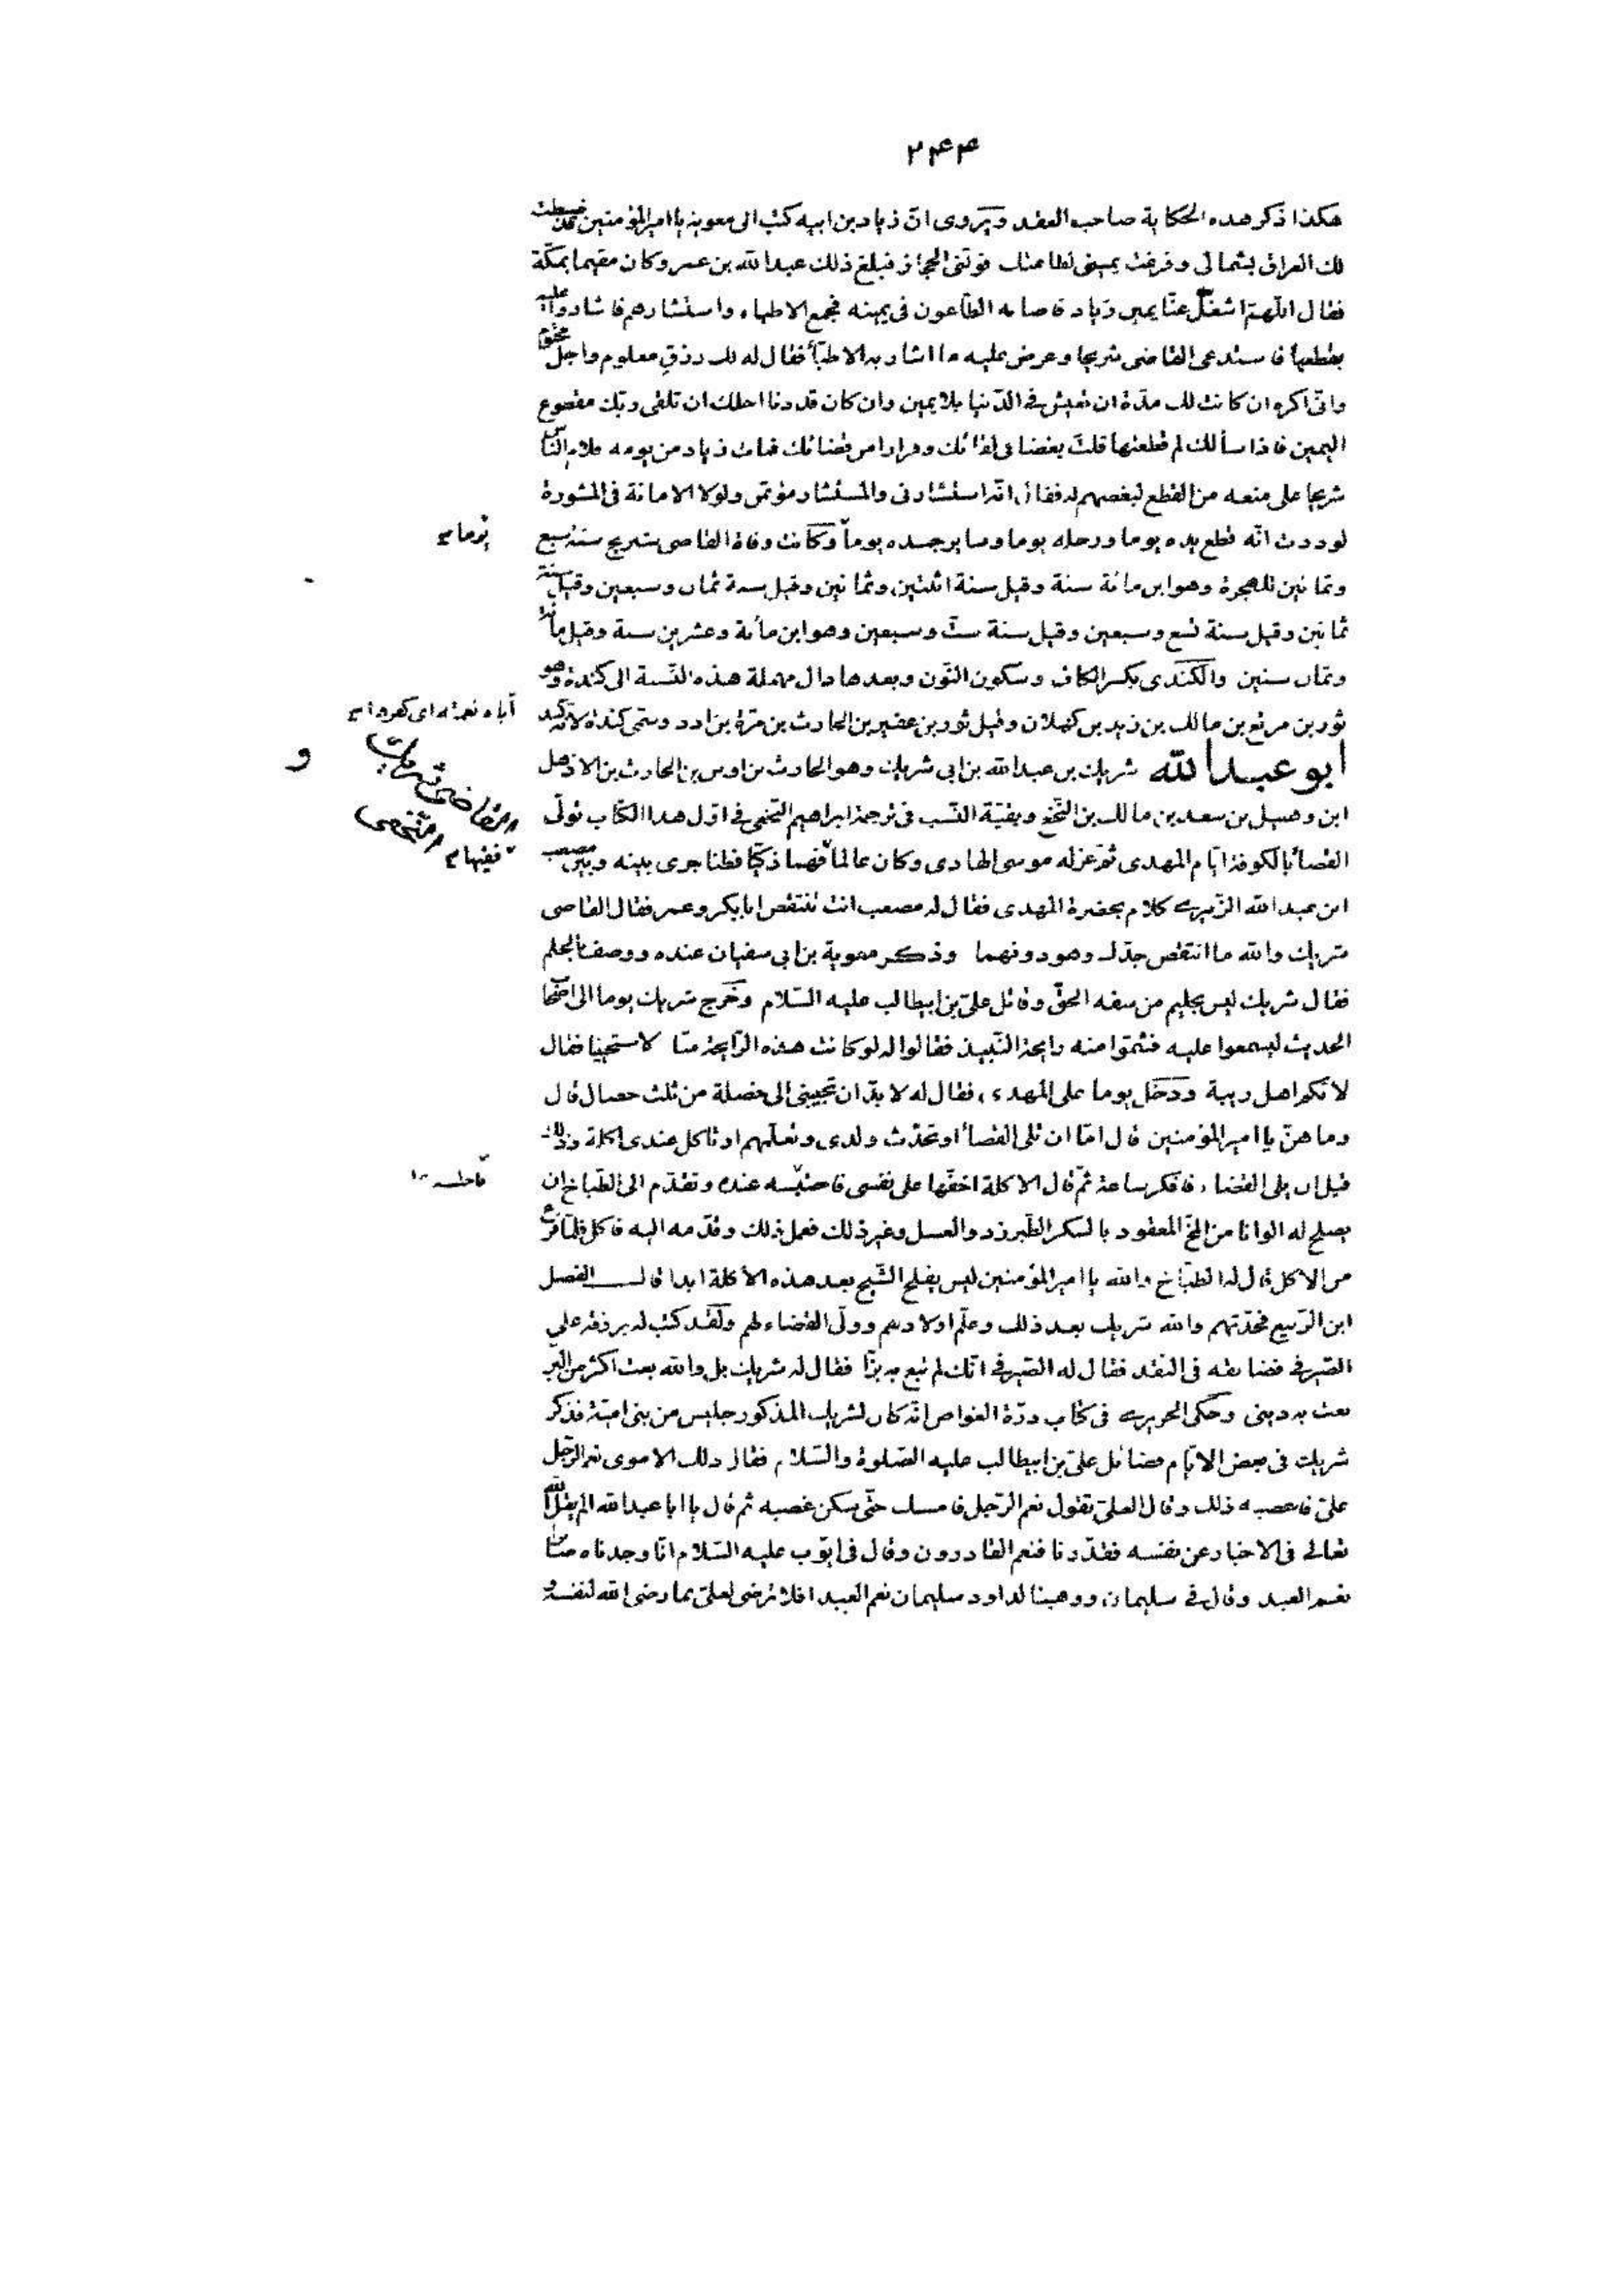 ۲۴۴
هكذا ذكر هذه الحكاية صاحب العقد ويروى ان زياد بن ابيه كتب الى معوية يا امير المؤمنين قد ضبطت
لك العراق بشمالى وفرغت يمينى لطاعتك فولنى الحجاز فبلغ ذلك عبد الله بن عمر وكان مقيما بمكة
فقال اللهم اشغل عنا يمين زياد فاصابه الطاعون فى يمينه فجمع الاطباء واستشارهم فاشاروا عليه
بقطعها فاستدعى القاضى شريحا وعرض عليه ما اشار به الاطباء فقال له لك رزق معلوم واجل محتوم
وانى اكره ان كانت لك مدة ان تعيش فى الدنيا بلا يمين وان كان قد دنا اجلك ان تلقى ربك مقطوع
اليمين فاذا سألك لم قطعتها قلت بغضا فى لقائك وفرارا من قضائك فمات زياد من يومه فلام الناس
شريحا على منعه من القطع لبغضهم له فقال انه استشارنى والمستشار مؤتمن ولولا الامانة فى المشورة
لوددت انه قطع يده يوما ورجله يوما وسائر جسده يوما وكانت وفاة القاضى شريح سنة سبع
يوما
وثمانين للهجرة وهو ابن مائة سنة وقيل سنة اثنتين وثمانين وقيل سنة ثمان وسبعين وقيل سنة
ثمانين وقيل سنة تسع وسبعين وقيل سنة ست وسبعين وهو ابن مائة وعشرين سنة وقيل مائة
وثمان سنين والكندى بكسر الكاف وسكون النون وبعدها دال مهملة هذه النسبة الى كندة وهو
ثور بن مرتع بن مالك بن زيد بن كهلان وقيل ثور بن عفير بن الحارث بن مرة بن ادد وسمى كندة لانه كند
آباه نعمته اى كفرها
ابو عبد الله شريك بن عبد الله بن ابى شريك وهو الحارث بن اوس بن الحارث بن الاذهل
القاضى شريك النخعى
و
ابن وهبيل بن سعد بن مالك بن النخع وبقية النسب فى ترجمة ابراهيم النخعى فى اول هذا الكتاب تولى
القضاء بالكوفة ايام المهدى ثم عزله موسى الهادى وكان عالما فهما ذكيا فطنا جرى بينه وبين مصعب
فقيها
ابن عبد الله الزبيرى كلام بحضرة المهدى فقال له مصعب انت تنتقص ابا بكر وعمر فقال القاضى
شريك والله ما انتقص جدك وهو دونهما وذكر معوية بن ابى سفيان عنده ووصف بالحلم
فقال شريك ليس بحليم من سفه الحق وقاتل على بن ابيطالب عليه السلام وخرج شريك يوما الى اصحاب
الحديث ليسمعوا عليه فشموا منه رايحة النبيذ فقالوا له لو كانت هذه الرايحة منا لاستحيينا فقال
لانكم اهل ريبة ودخل يوما على المهدى فقال له لا بد ان تجيبنى الى خصلة من ثلث خصال قال
وما هن يا امير المؤمنين قال اما ان تلى القضاء او تحدث ولدى وتعلمهم او تاكل عندى اكلة وذلك
قبل ان يلى القضاء فافكر ساعة ثم قال الاكلة اخفها على نفسى فاحتبسه عنده وتقدم الى الطباخ ان
يصلح له الوانا من المخ المعقود بالسكر الطبرزد والعسل وغير ذلك فعمل ذلك وقدمه اليه فاكل فلما فرغ
من الاكل قال له الطباخ والله يا امير المؤمنين ليس يفلح الشيخ بعد هذه الأكلة ابدا قال الفضل
ابن الربيع فحدثهم والله شريك بعد ذلك وعلم اولادهم وولى القضاء لهم ولقد كتب له برزقه على
الصيرفى فضايقه فى النقد فقال له الصيرفى انك لم تبع به بزا فقال له شريك بل والله بعت اكثر من البز
بعت به دينى وحكى الحريرى فى كتاب درة الغواص انه كان لشريك المذكور جليس من بنى امية فذكر
شريك فى بعض الايام فضائل على بن ابيطالب عليه الصلوة والسلام فقال ذلك الاموى نعم الرجل
على فاغضبه ذلك وقال العلى تقول نعم الرجل فامسك حتى سكن غضبه ثم قال يا ابا عبد الله الم يقل الله
تعالى فى الاخبار عن نفسه فقدرنا فنعم القادرون وقال فى ايوب عليه السلام انا وجدناه صابرا
نعم العبد وقال فى سليمان ووهبنا لداود سليمان نعم العبد افلا ترضى لعلى بما رضى الله لنفسه